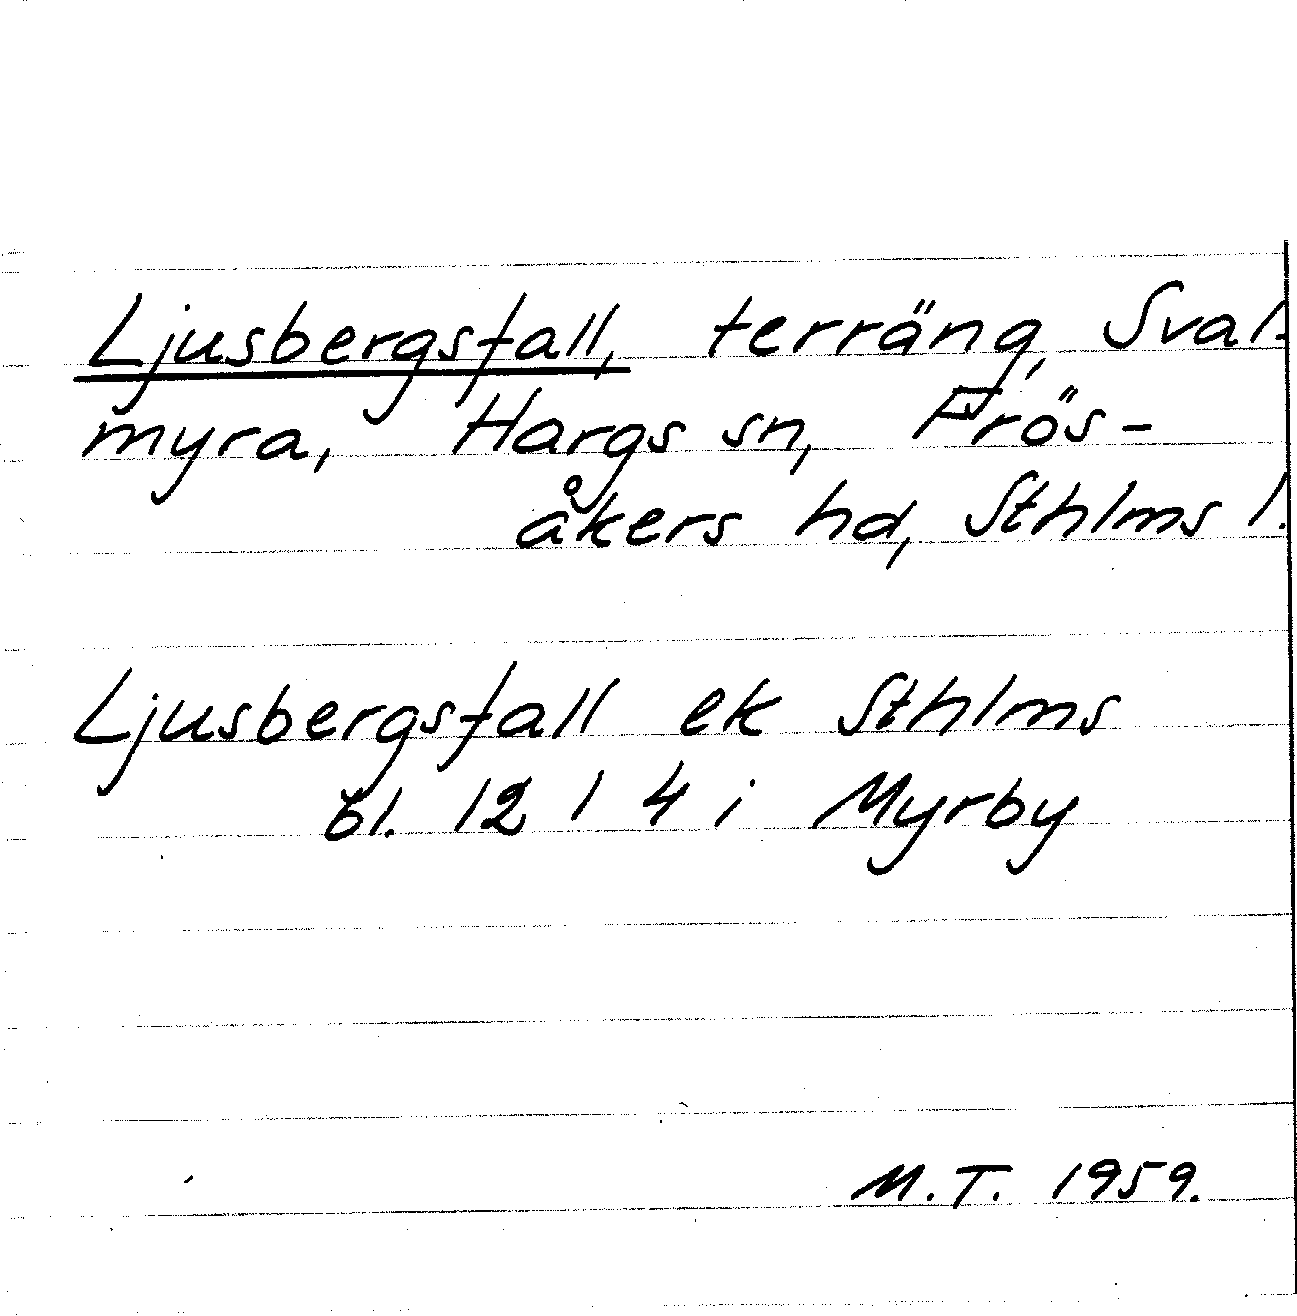 Ljusbergsfall, terräng, Sval-
myra, Hargs sn, Frös-
åkers hd, Sthlms l.
Ljusbergsfall ek Sthlms
bl. 12 1 4 i Myrby
M.T. 1959.